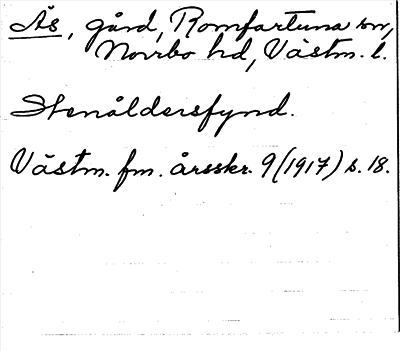 Ås, gård, Romfartuna sn,
Norrbo hd, Västm. l.
Stenåldersfynd.
Västm. fm. årsskr. 9 (1917) s. 18.